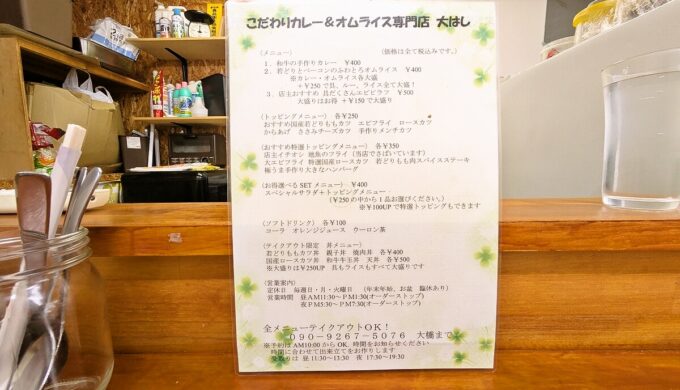 こだわりカレー＆オムライス専門店 大はし
（メニュー） （価格は全て税込みです。）
１．和牛の手作りカレー ￥400
２．若どりとベーコンのふわとろオムライス ￥400
※カレー・オムライス各大盛
＋￥250で具、ルー、ライス全て大盛！
３．店主おすすめ 具だくさんエビピラフ ￥500
大盛りはお得 ＋￥150で大盛り
（トッピングメニュー） 各￥250
おすすめ国産若どりももカツ エビフライ ロースカツ
からあげ ささみチーズカツ 手作りメンチカツ
（おすすめ特選トッピングメニュー） 各￥350
店主イチオシ 地魚のフライ（当店でさばいています）
大エビフライ 特選国産ロースカツ 若どりもも肉スパイスステーキ
極うま手作り大きなハンバーグ
（お得選べるSETメニュー） ￥400
スペシャルサラダ＋トッピングメニュー
（￥250の中から１品お選びください。）
※￥100UPで特選トッピングもできます
（ソフトドリンク） 各￥100
コーラ オレンジジュース ウーロン茶
（テイクアウト限定 丼メニュー）
若どりももカツ丼 親子丼 焼肉丼 各￥400
国産ロースカツ丼 和牛牛玉丼 天丼 各￥500
※大盛りは￥250UP 具もライスもすべて大盛りです
（営業案内）
定休日 毎週日・月・火曜日 （年末年始、お盆 臨休あり）
営業時間 昼AM11:30～PM1:30(オーダーストップ)
夜PM5:30～PM7:30(オーダーストップ)
全メニューテイクアウトOK！
０９０－９２６７－５０７６ 大橋まで
※予約はAM10:00からOK、時間をお知らせください
時間に合わせて出来立てをお作りします
受取りは 昼 11:30～13:30 夜 17:30～19:30